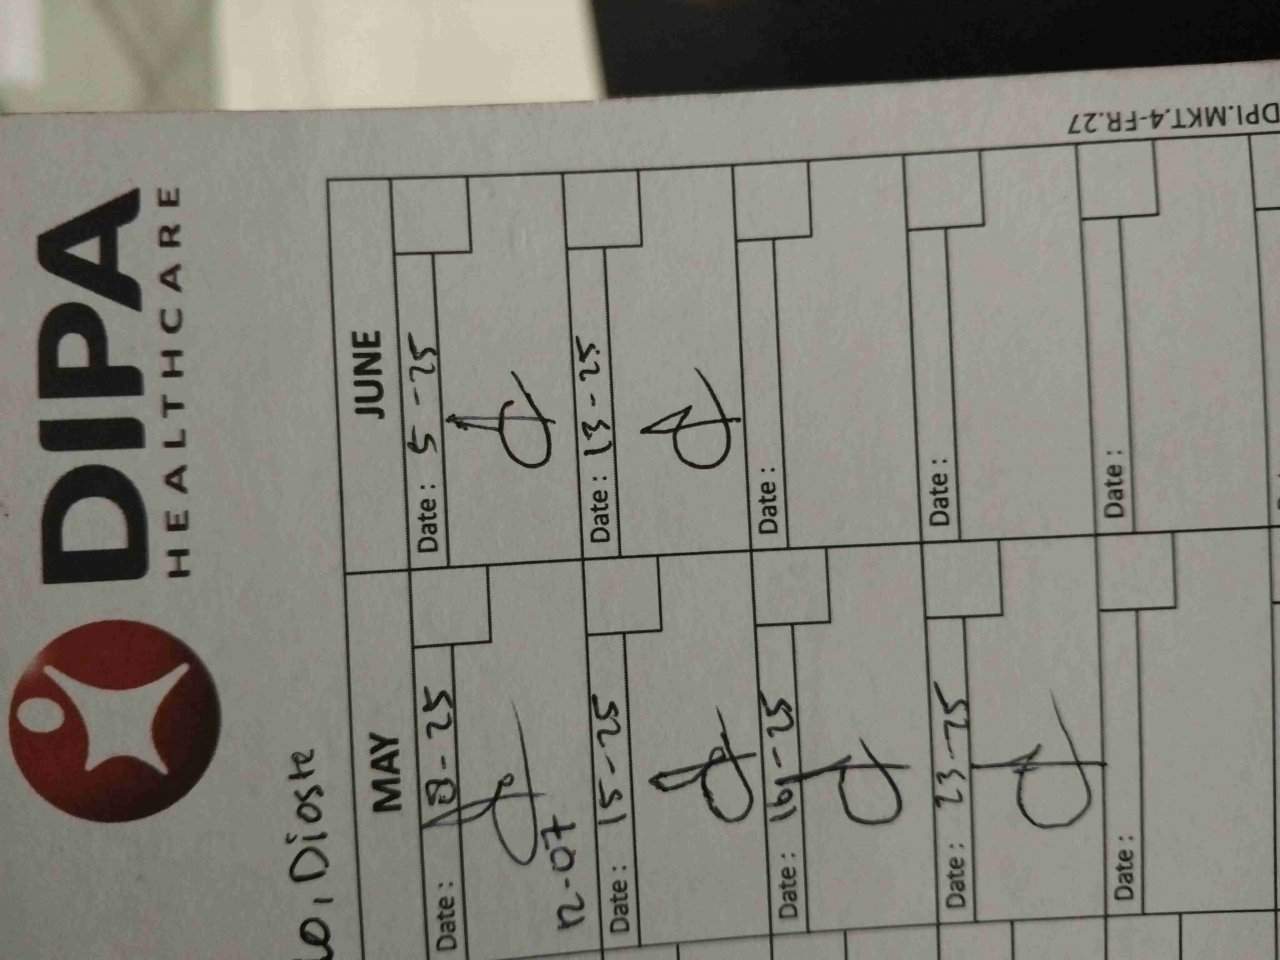 DIPA
HEALTHCARE
DPI.MKT.4-FR.27
, Dioste
MAY JUNE
Date: 8-25 Date: 5-25
12-07
Date: 15-25 Date: 13-25
Date: 16-25 Date:
Date: 23-25 Date:
Date: Date: